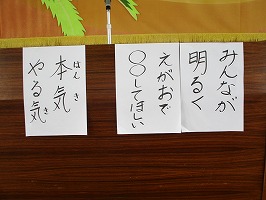 みんなが
明るく
えがおで
○○してほしい
本気
ほんき
やる気
き